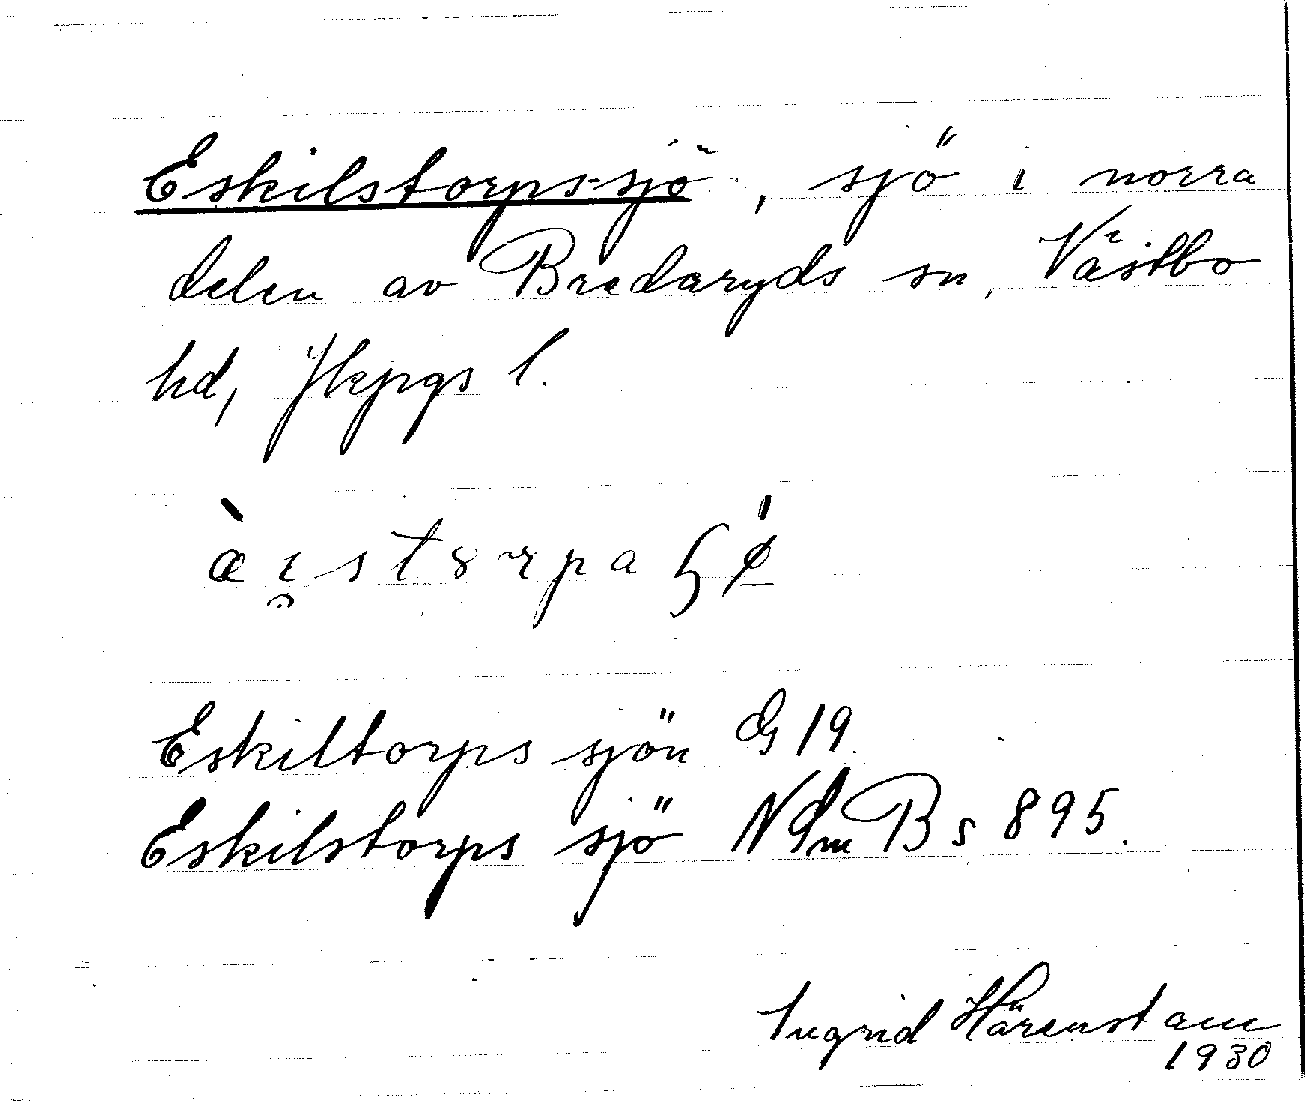 Eskilstorpssjö, sjö i norra
delen av Bredaryds sn, Västbo
hd, Jkpgs l.
Eskiltorps sjön G 19
Eskilstorps sjö NSmB s 895.
Ingrid Härenstam
1930